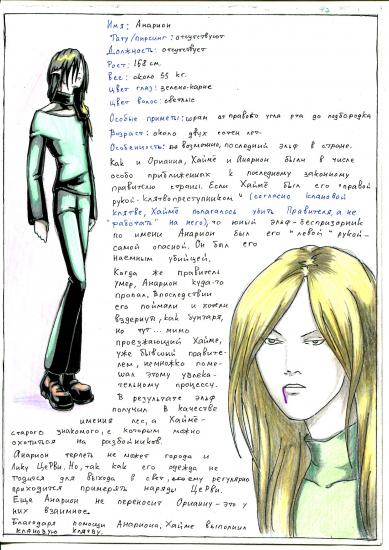 Имя: Анарион
Тату/пирсинг: отсутствуют
Должность: отсутствует
Рост: 168 см.
Вес: около 55 кг.
Цвет глаз: зелено-карие
Цвет волос: светлые
Особые приметы: шрам от правого угла рта до подбородка
Возраст: около двух сотен лет.
Особенность: возможно, последний эльф в стране.
Как и Орианна, Хаймё и Анарион были в числе
особо приближенных к последнему законному
правителю страны. Если Хаймё был его "правой
рукой-клятвопреступником" (согласно клановой
клятве, Хаймё полагалось убить Правителя, а не
"работать" на него), то юный эльф-беспризорник
по имени Анарион был его "левой" рукой-
самой опасной. Он был его
наемным убийцей.
Когда же правитель
умер, Анарион куда-то
пропал. Впоследствии
его поймали и хотели
вздернуть, как бунтаря,
но тут... мимо
проезжающий Хайме,
уже бывший правите-
лем, немножко поме-
шал этому увлека-
тельному процессу.
В результате эльф
получил в качестве
имения лес, а Хаймё-
старого знакомого, с которым можно
охотиться на разбойников.
Анарион терпеть не может города и
Лику ЦеРви. Но, так как его одежда не
годится для выхода в свет, ему регулярно
приходится примерять наряды ЦеРви.
Еще Анарион не переносит Орианну-это у
них взаимное.
Благодаря помощи Анариона, Хайме выполнил
клановую клятву.